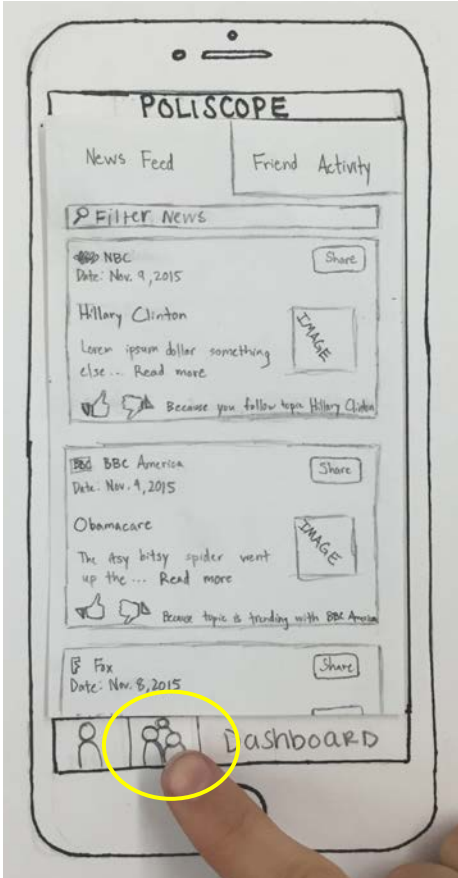 POLISCOPE
News Feed
Friend Activity
Filter News
NBC
Share
Date: Nov. 9, 2015
Hillary Clinton
IMAGE
Lorem ipsum dollar something
else... Read more
Because you follow topic Hillary Clinton
BBC BBC America
Share
Date: Nov. 9, 2015
Obamacare
IMAGE
The Asy bitsy spider went
up the ... Read more
Because topic is trending with BBC America
F Fox
Share
Date: Nov. 8, 2015
DashboaRD